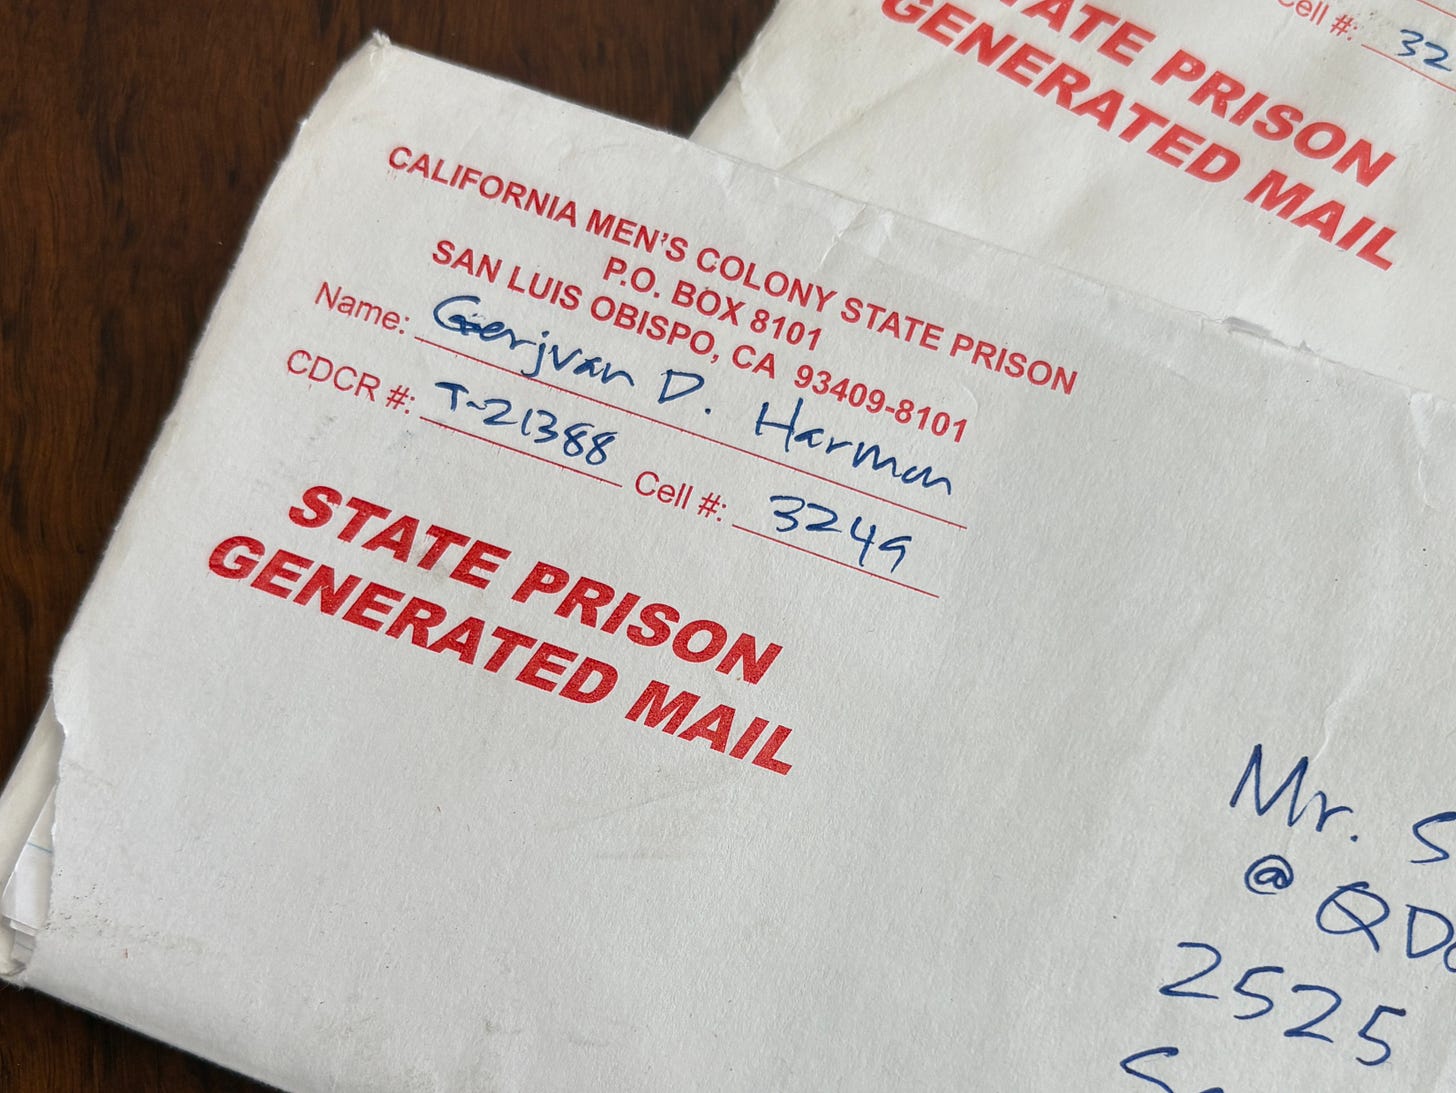 CALIFORNIA MEN'S COLONY STATE PRISON
P.O. BOX 8101
SAN LUIS OBISPO, CA 93409-8101
Name: Gerjvan D. Harmon
CDCR #: T-21388 Cell #: 3249
STATE PRISON
GENERATED MAIL
Mr. S
@ QDo
2525
Cell #: 32
STATE PRISON
GENERATED MAIL